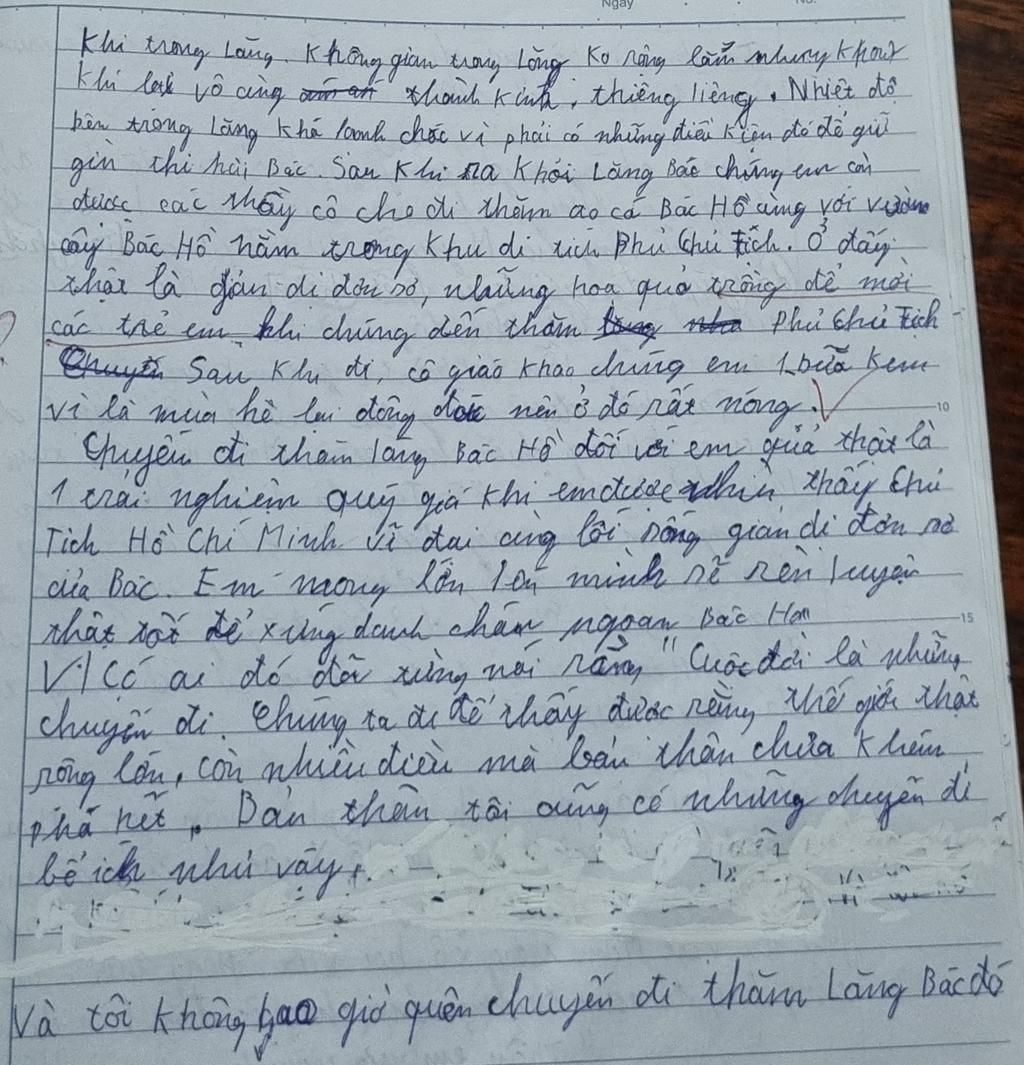 Ngày No.
khí trong Lăng. Không gian trong Lăng Ko rộng lắm nhưng không
khí lại vô cùng thành kính, thiêng liêng. Nhiệt độ
bên trong Lăng khá lạnh chắc vì phải có những điều kiện đó để giữ
gìn thi hài Bác. Sau khi ra khỏi Lăng Bác chúng em còn
được các thầy cô cho đi thăm ao cá Bác Hồ cùng với vườn
cây Bác Hồ nằm trong khu di tích Phủ Chủ tịch. Ở đây
thật là giản dị đơn sơ, những hoa quả trồng để mời
các trẻ em khi chúng đến thăm Phủ Chủ tịch
Sau khi đi, cô giáo khao chúng em 1 bữa kem
vì là mùa hè lại đông đúc nên ở đó rất nóng. 10
Chuyến đi thăm lăng Bác Hồ đối với em quả thật là
1 trải nghiệm quý giá khi em được nhìn thấy Chủ
Tịch Hồ Chí Minh vĩ đại cùng lối sống giản dị đơn sơ
của Bác. Em mong lớn lên mình sẽ rèn luyện
thật tốt để xứng danh cháu ngoan Bác Hồ 15
VI Có ai đó đã từng nói rằng "Cuộc đời là những
chuyến đi. Chúng ta đi để thấy được rằng thế giới thật
rộng lớn, còn nhiều điều mà bản thân chưa khám
phá hết. Bản thân tôi cũng có những chuyến đi
bổ ích như vậy.
Và tôi không bao giờ quên chuyến đi thăm Lăng Bác đó